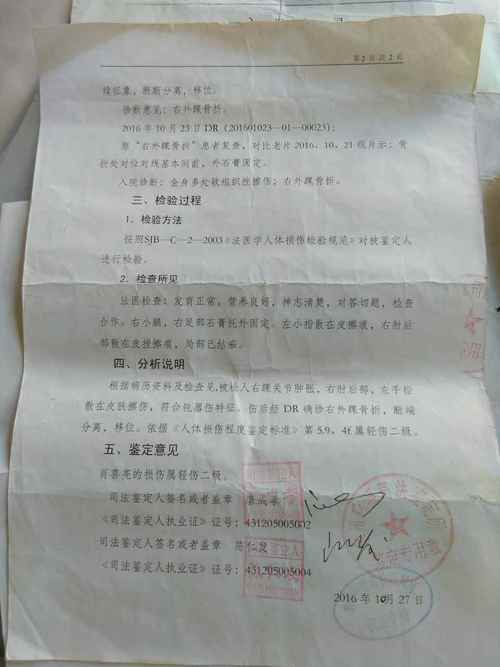 第2页共2页
续征象，断断分离，移位。
诊断意见：右外踝骨折。
2016年10月23日DR（20161023—01—00023）：
原“右外踝骨折”患者复查，对比老片2016、10、21现片示：骨
折处对位对线基本同前，外石膏固定。
入院诊断：全身多处软组织挫擦伤；右外踝骨折。
三、检验过程
1、检验方法
按照SJB—C—2—2003《法医学人体损伤检验规范》对被鉴定人
进行检验。
2、检查所见
法医检查：发育正常，营养良好，神志清楚，对答切题，检查
合作。右小腿，右足部石膏托外固定。左小指散在皮擦痕，右肘后
部散在皮挫擦痕，局部已结痂。
四、分析说明
根据病历资料及检查见，被检人右踝关节肿胀，右肘后部，左手指
散在皮肤擦伤，符合钝器伤特征。伤后经DR确诊右外踝骨折，断端
分离，移位。依据《人体损伤程度鉴定标准》第5.9、4f属轻伤二级。
五、鉴定意见
的损伤属轻伤二级。
司法鉴定人签名或者盖章
《司法鉴定人执业证》证号：431205005002
司法鉴定人签名或者盖章
《司法鉴定人执业证》证号：431205005004
2016年10月27日